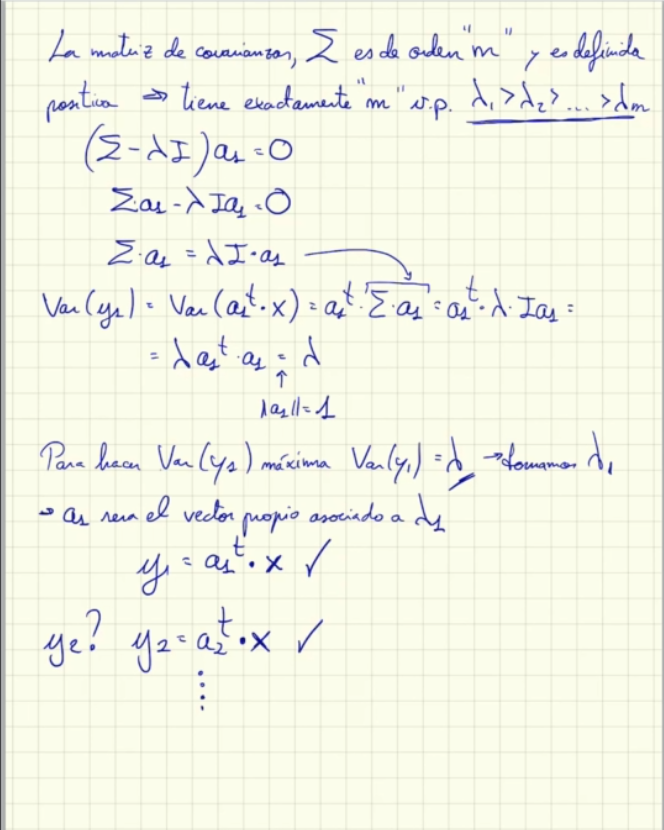 La matriz de covarianzas, Σ es de orden "m" y es definida
positiva ⇒ tiene exactamente "m" v.p. λ₁>λ₂>...>λm
(Σ-λI)a₁=0
Σa₁-λIa₁=0
Σ·a₁=λI·a₁
Var(y₁)=Var(a₁ᵗ·x)=a₁ᵗ·Σ·a₁=a₁ᵗ·λ·Ia₁=
=λa₁ᵗ·a₁=λ
↑
||a₁||=1
Para hacer Var(y₁) máxima Var(y₁)=λ → tomamos λ₁
→ a₁ sera el vector propio asociado a λ₁
y₁=a₁ᵗ·x ✓
y₂? y₂=a₂ᵗ·x ✓
⋮